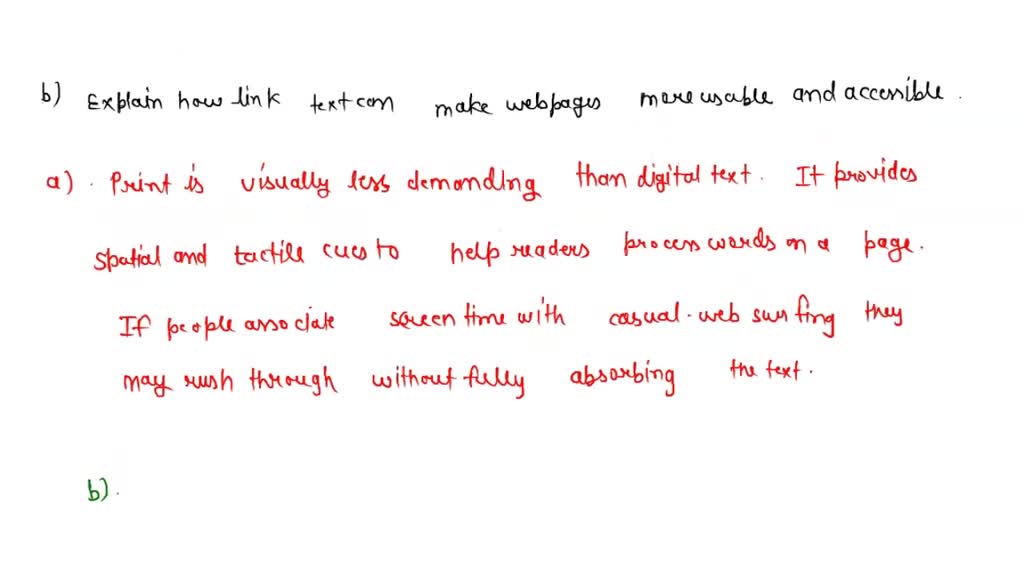 b) Explain how link text can make webpages more usable and accessible.
a). Print is visually less demanding than digital text. It provides
spatial and tactile cues to help readers process words on a page.
If people associate screen time with casual-web surfing they
may rush through without fully absorbing the text.
b).